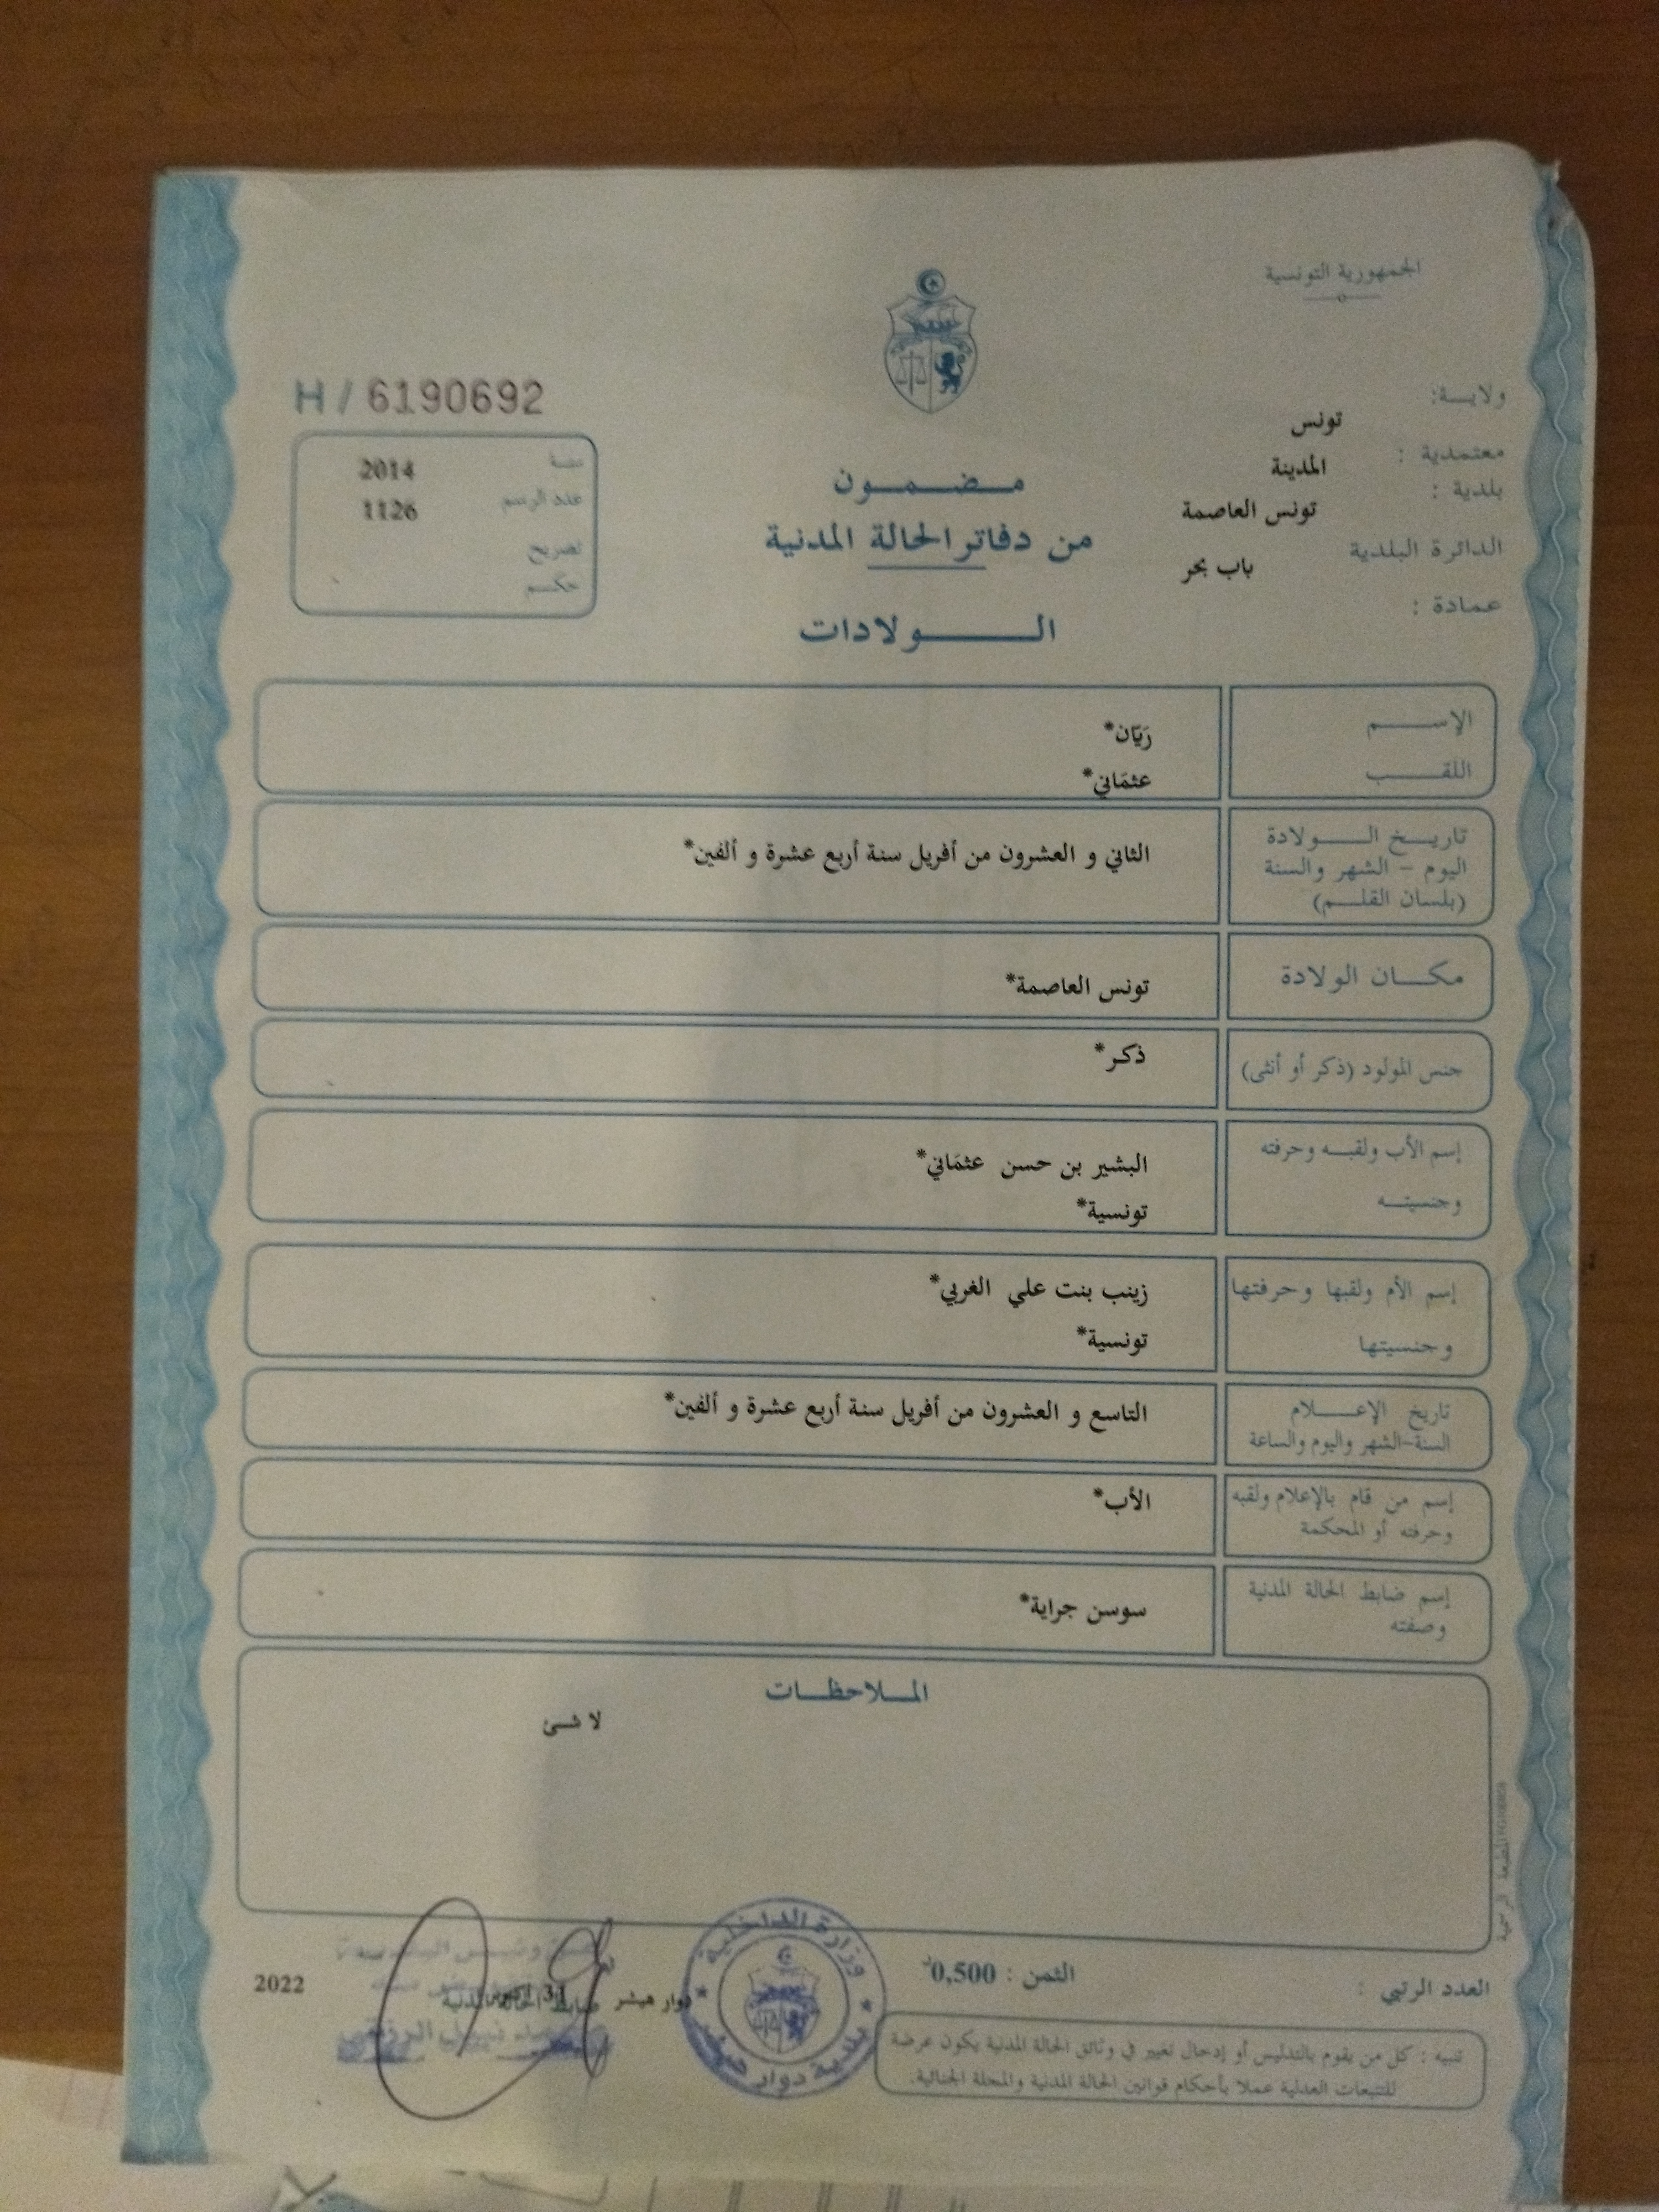 الجمهورية التونسية
ولايـــة:
تونس
معتمدية :
المدينة
بلدية :
تونس العاصمة
الدائرة البلدية
باب بحر
عمادة :
H / 6190692
سنـة 2014
عدد الرسم 1126
تصريح
حكــم
مـــضـــمـــون
من دفاتر الحالة المدنية
الــــــولادات
الإســــــم
رَيّان*
اللقــــــب
عثمَاني*
تاريـــخ الـــــولادة
اليوم - الشهر والسنة
(بلسان القلـــم)
الثاني و العشرون من أفريل سنة أربع عشرة و ألفين*
مكـــان الولادة
تونس العاصمة*
جنس المولود (ذكر أو أنثى)
ذكر*
إسم الأب ولقبــه وحرفته
البشير بن حسن عثمَاني*
وجنسيتــه
تونسية*
إسم الأم ولقبها وحرفتها
زينب بنت علي الغربي*
وجنسيتها
تونسية*
تاريخ الإعـــــلام
السنة-الشهر واليوم والساعة
التاسع و العشرون من أفريل سنة أربع عشرة و ألفين*
إسم من قام بالإعلام ولقبه
وحرفته أو المحكمة
الأب*
إسم ضابط الحالة المدنية
وصفته
سوسن جراية*
المـــلاحظـــات
لا شئ
المطبعة الرسمية
العدد الرتبي :
الثمن : 0,500د
وزارة الداخلية
بلدية دوار هيشر
دوار هيشر
31
ضابط الحالة المدنية
2022
تنبيه : كل من يقوم بالتدليس أو إدخال تغيير في وثائق الحالة المدنية يكون عرضة
للتتبعات العدلية عملا بأحكام قوانين الحالة المدنية والمجلة الجنائية.